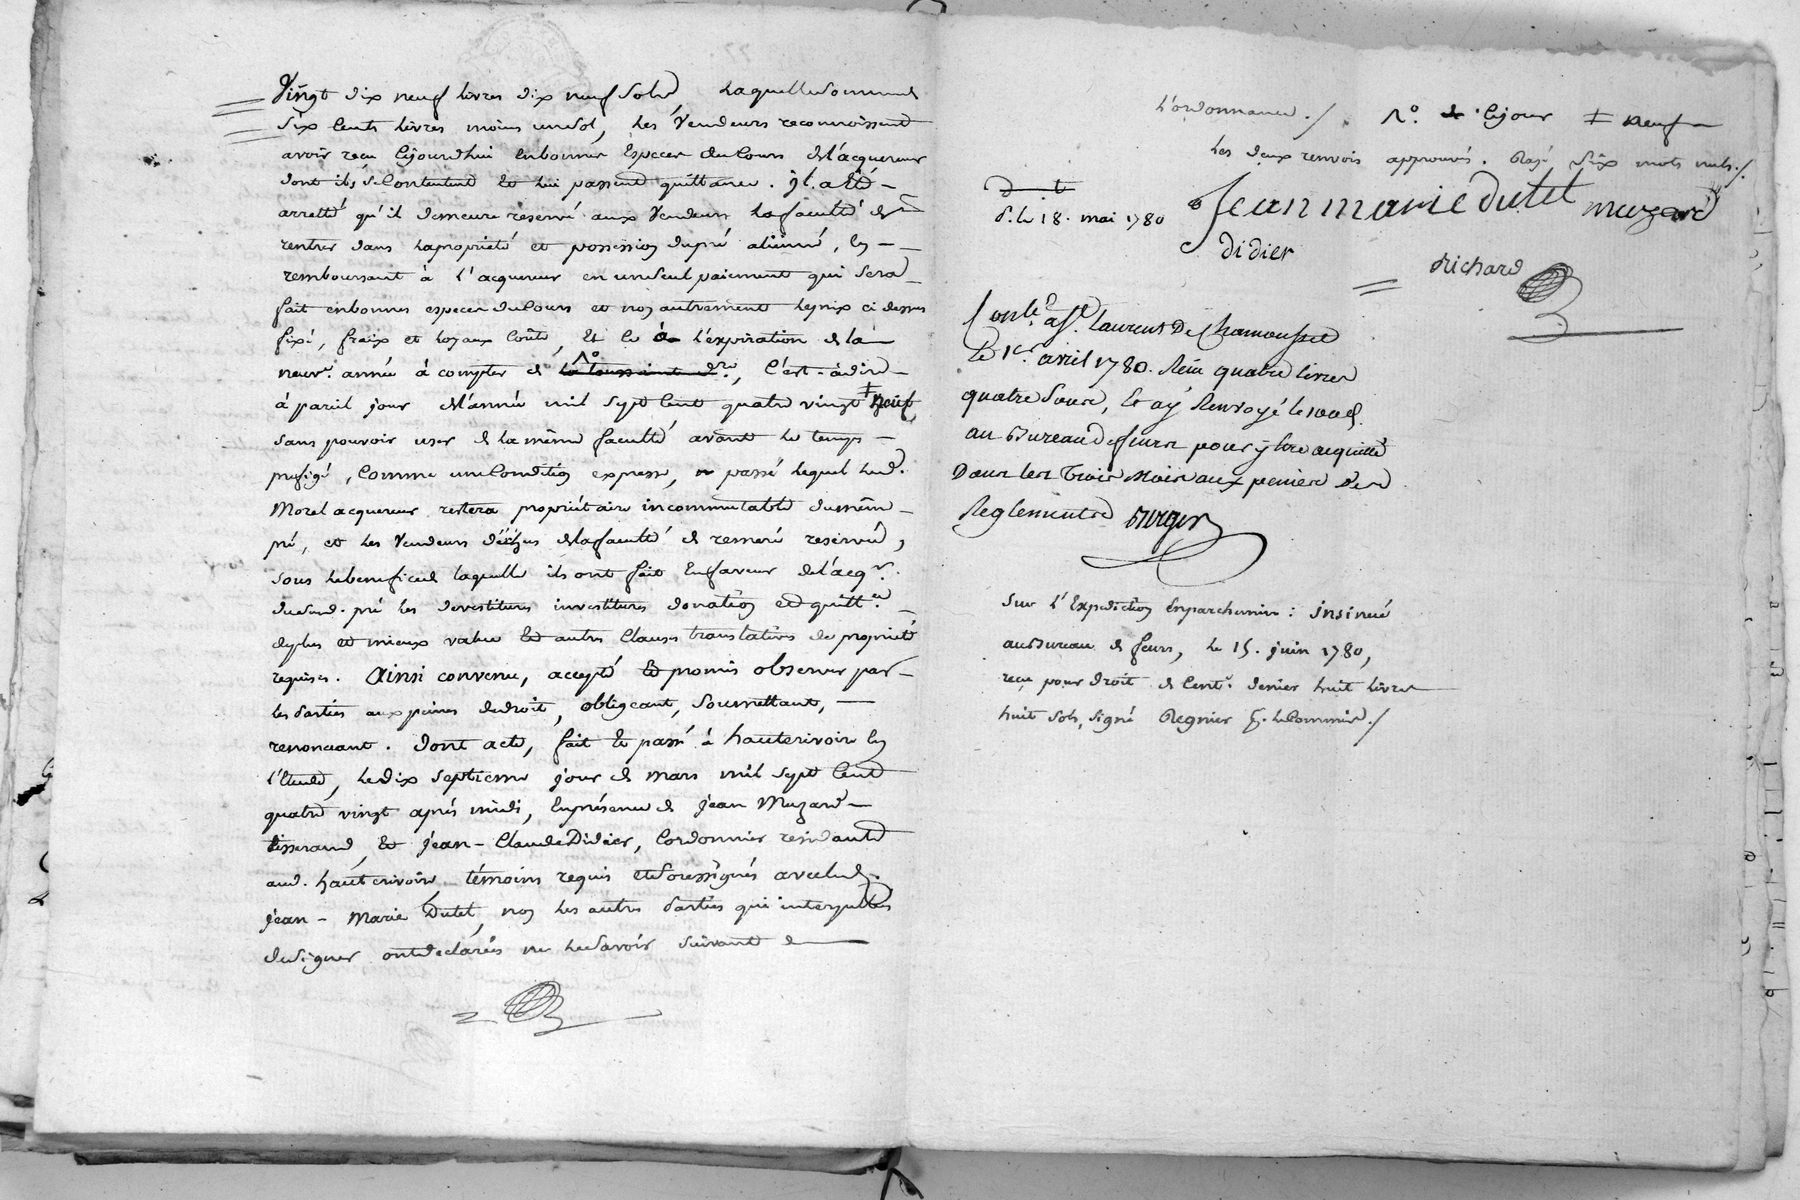 Vingt dix neuf livres dix neuf sols, laquelle somme de
six cents livres moins un sol, les vendeurs reconnoissent
avoir reçu cejourdhui en bonnes especes du cours de l'acquereur
dont ils se contentent et lui passent quittance. il a été
arretté qu'il demeure reservé aux vendeurs la faculté de
rentrer dans la propriété et possession du pré aliéné, en
remboursant à l'acquereur en un seul paiement qui sera
fait en bonnes especes du cours et non autrement le prix ci dessus
fixé, fraix et loyaux coûts, et ce à l'expiration de la
neuve. année à compter de la toussaint dre., c'est-à-dire
à pareil jour de l'année mil sept cent quatre vingt ‡ neuf
sans pouvoir user de la même faculté avant le temps
prefigé, comme une condition expresse, passé lequel led.
Morel acquereur restera propriétaire incommutable du même
pré, et les vendeurs déchus de la faculté de remeré reservée,
sous le benefice de laquelle ils ont fait en faveur de l'acqr.
dudit. pré les devestitures investitures donation et quitte.
de plus et mieux value et autres clauses translatives de propriété
requises. Ainsi convenu, accepté et promis observer par
les parties aux peines de droit, obligeant, soumettant,
renonceant. dont acte, fait et passé à hauterivoire en
l'étude, le dix septieme jour de mars mil sept cent
quatre vingt après midi, en présence de jean Muzard
tisserand, et jean-Claude Didier, cordonnier residants
aud. hauterivoire, témoins requis et soussignés avec led.
jean-Marie Dutel, non les autres parties qui interpellées
de signer ont declarées ne le savoir suivant
l'ordonnance ./. de cejour ‡ neuf
les deux renvois approuvés. Rayé six mots nuls ./.
d. le 18. mai 1780
Jean marie dutel muzard
didier
Richard
Conlé. a St. Laurent De Chamousset
Le 1er. avril 1780. Reçu quatre livres
quatre sous, et ay renvoyé le
au Bureau de feurs pour y être acquitté
Dans les trois mois aux peines des
Reglements
sur l'Expedition en parchemin: insinué
au Bureau de feurs, le 15. juin 1780,
reçu pour droit de cente. denier huit livres
huit sols, signé Regnier le Commis ./.